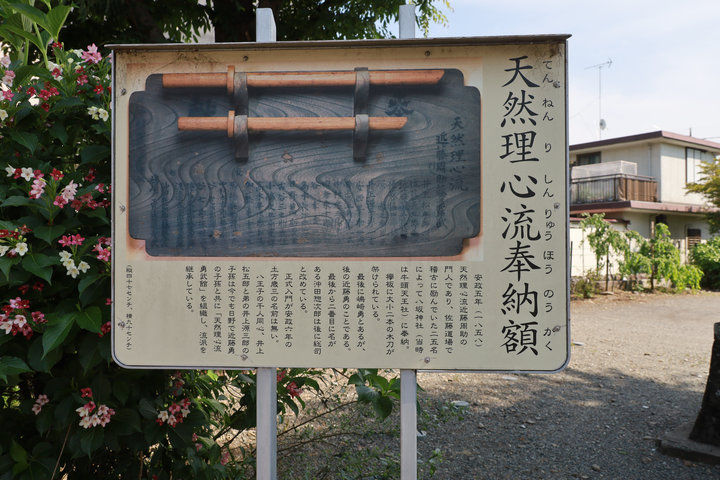 天然理心流奉納額
てんねんりしんりゅうほうのうがく
天然理心流
近藤周助
安政五年（一八五八）
天然理心流近藤周助の
門人であり、佐藤道場で
稽古に励んでいた二五名
によって八坂神社（当時
は牛頭天王社）に奉納。
欅板に大小二本の木刀が
架けられている。
最後に嶋崎勇とあるが、
後の近藤勇のことである。
最後から二番目に名が
ある沖田惣次郎は後に総司
と改めている。
正式入門が安政六年の
土方歳三の名前は無い。
八王子の千人同心、井上
松五郎と弟の井上源三郎の
子孫は今でも日野で近藤勇
の子孫と共に「天然理心流
勇武館」を組織し、流派を
継承している。
（縦四十センチ・横九十センチ）